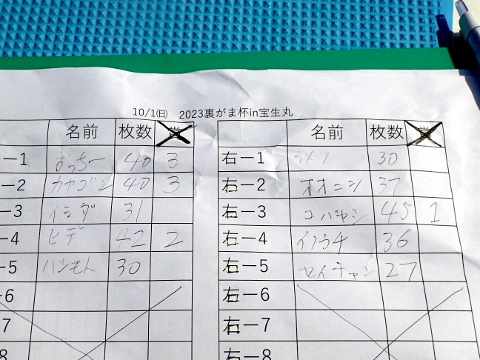 10/1(日) 2023裏がま杯in宝生丸
名前 枚数
ー1 40 3
ー2 カナゴン 40 3
ー3 イシダ 31
ー4 ヒデ 42 2
ー5 ハシモト 30
ー6
ー7
ー8
名前 枚数
右ー1 30
右ー2 オオニシ 37
右ー3 コバヤシ 45 1
右ー4 イノウチ 36
右ー5 セイチャン 27
右ー6
右ー7
右ー8